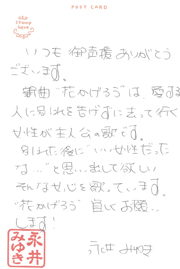 POST CARD
いつも御声援ありがとう
ございます。
新曲 "花かげろう"は、愛する
人に別れを告げずに去って行く
女性が主人公の歌です。
別れた後に"いい女性だった
な…"と思い出して欲しい
そんな女心を歌っています。
"花かげろう"宜しくお願い
します!
永井みゆき
永井みゆき